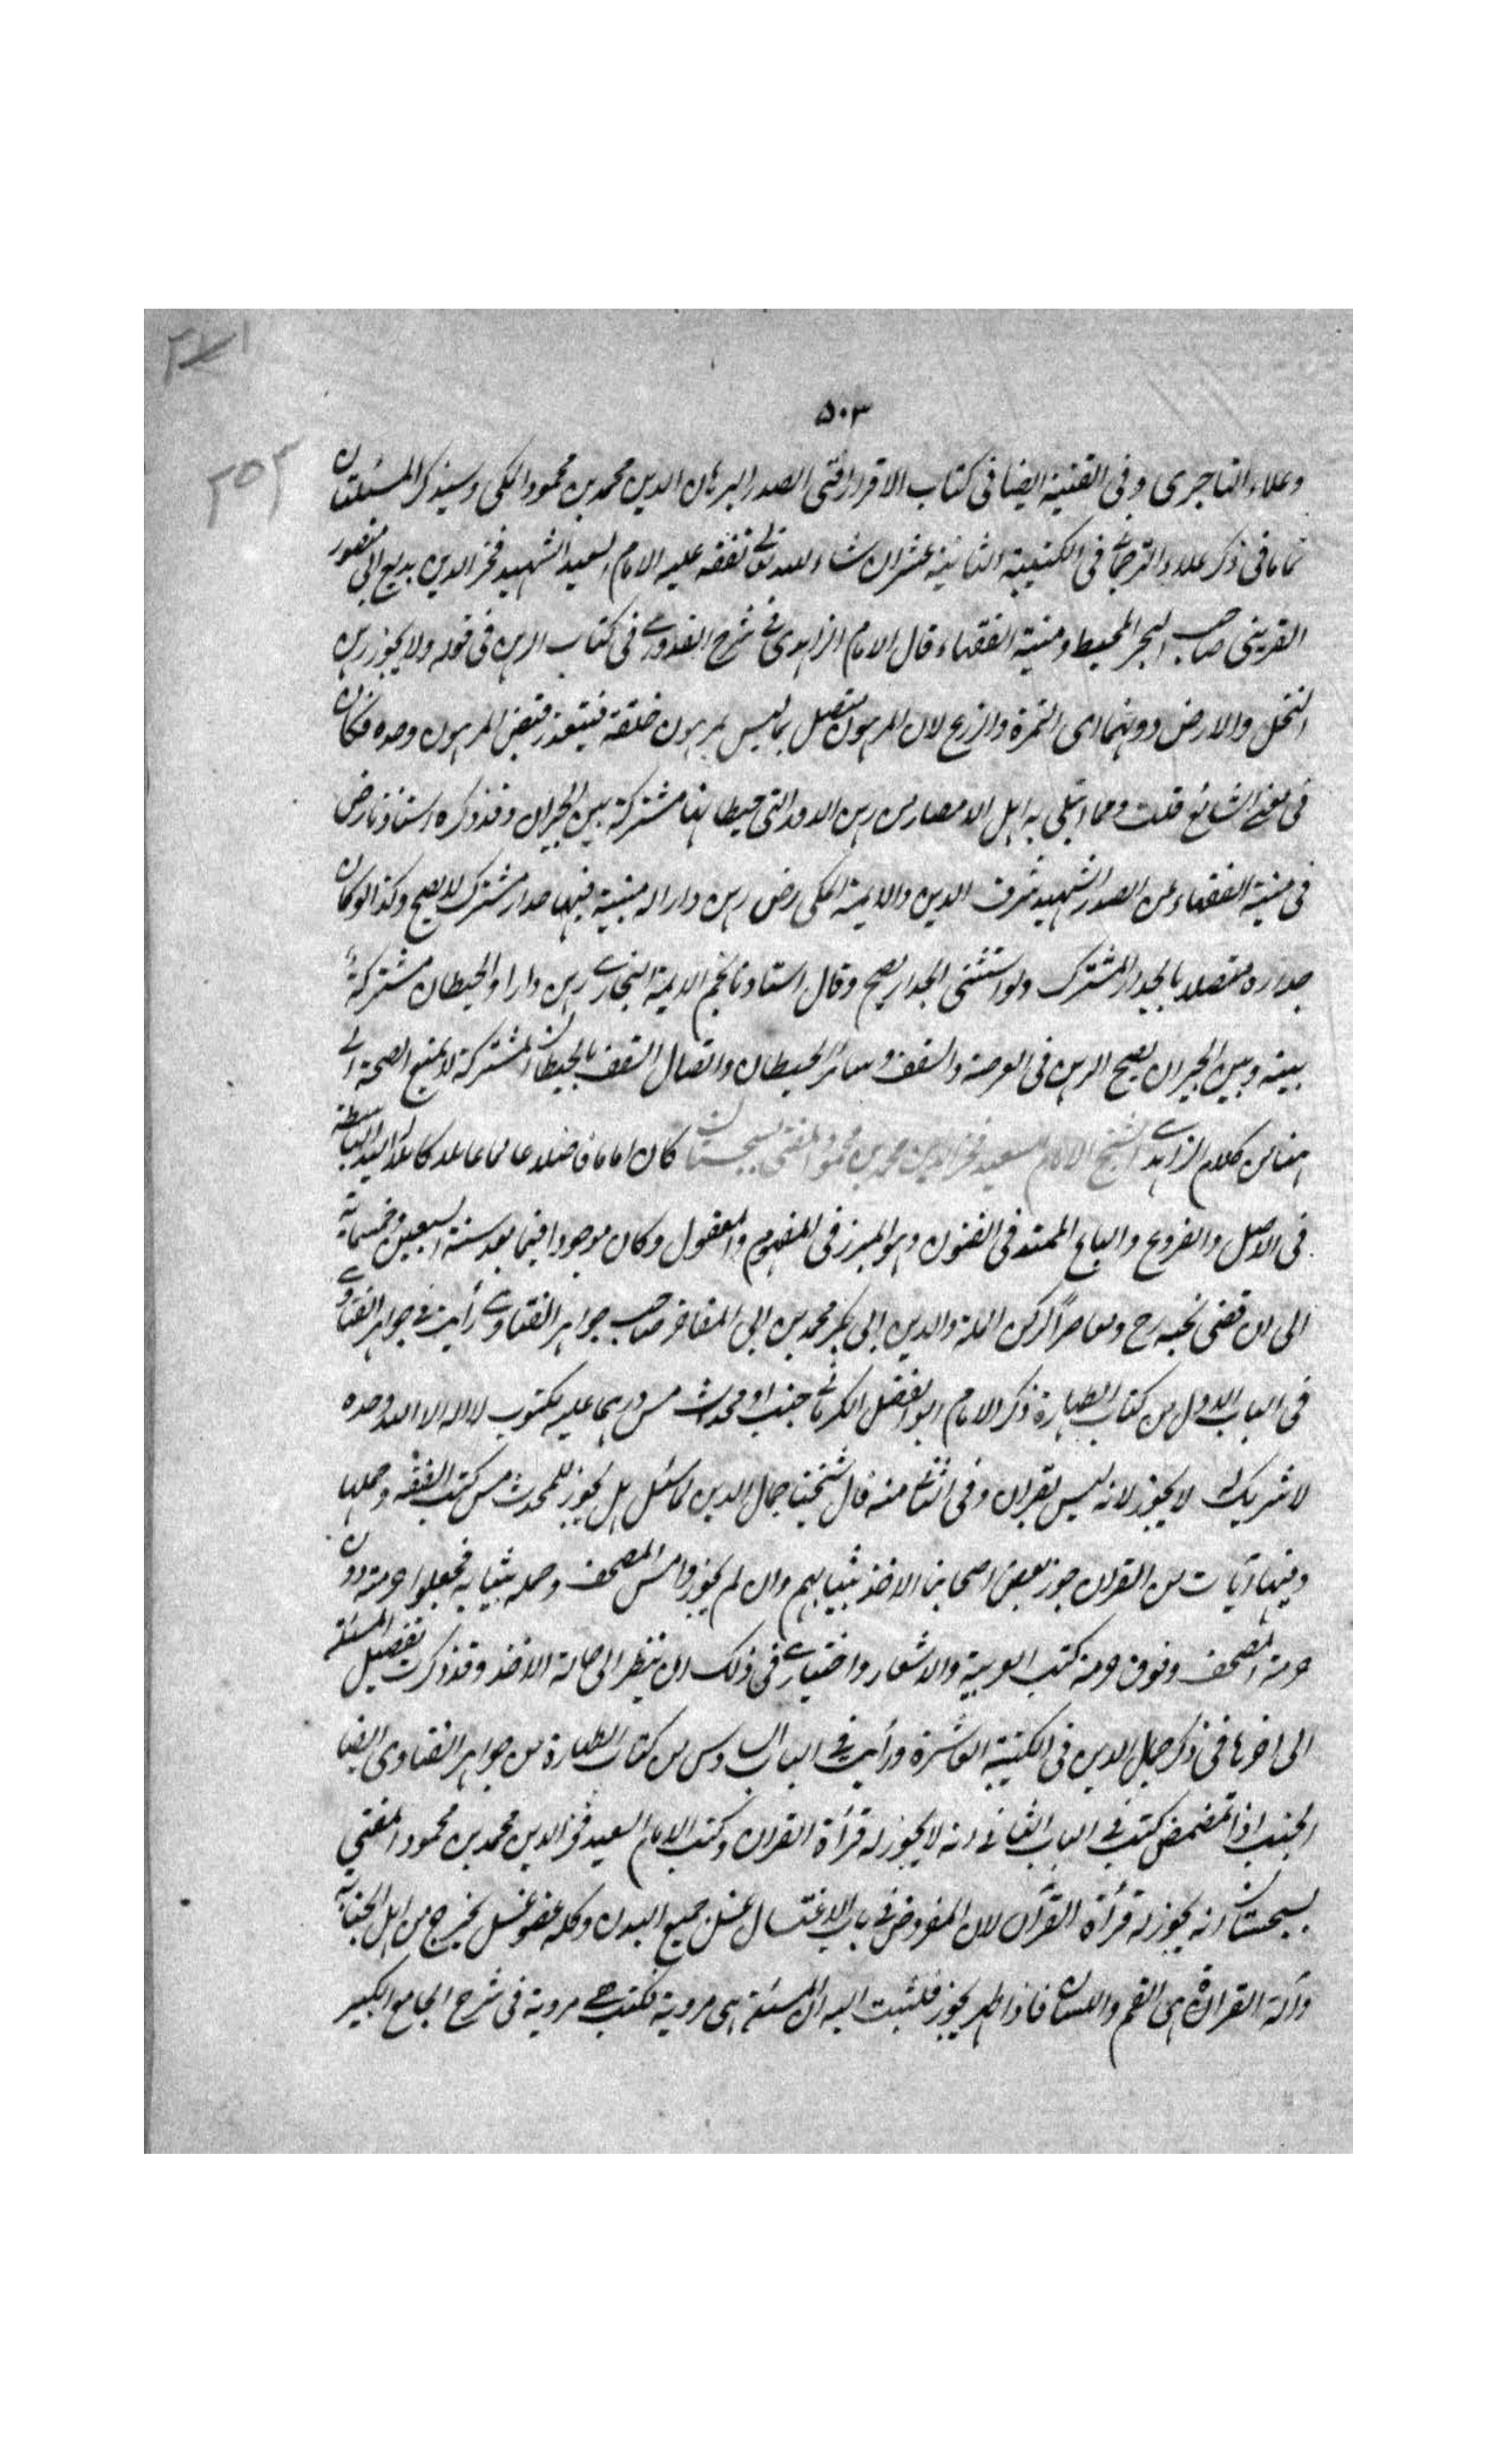 ٢٧١
٥٠٣
٢٥٢
وعلاء التاجرى وفى القنية ايضا فى كتاب الاقرار افتى الصدر البرهان الدين محمد بن محمود المكى وسيذكر المسئلتان
تماما فى ذكر علاء الترجمانى فى الكتيبة الثانية عشر ان شاء الله تعالى تفقه عليه الامام السعيد الشهيد فخر الدين بديع بن ابى منصور
القزينى صاحب البحر المحيط ومنية الفقهاء قال الامام الزاهدى فى شرح القدورى فى كتاب الرهن فى قوله ولا يجوز رهن
النخل والارض دونهما اى الثمرة والزرع لان المرهون متصل بما ليس بمرهون خلقة فيتعذر قبض المرهون وحده فكان
فى معنى الشائع قلت ومما ابتلى به اهل الامصار من رهن الدور التى حيطانها مشتركة بين الجيران وقد ذكره استاذنا رض
فى منية الفقهاء عن الصدر الشهيد شرف الدين والايمة المكى رض رهن دارا له مبنية فيها جدار مشترك لا يصح وكذا لو كان
جداره متصلا بالجدار المشترك ولو استثنى الجدار يصح وقال استاذنا نجم الايمة البخارى رهن دارا والحيطان مشتركة
بينه وبين الجيران يصح الرهن فى العرصة والسقف وسائر الحيطان واتصال السقف بالحيطان المشتركة لا يمنع الصحة الى
هنا من كلام الزاهدى الشيخ الامام السعيد فخر الدين محمد بن محمود المفتى بسجستان كان اماما فاضلا عالما عاملا كاملا له اليد الباسطة
فى الاصل والفروع والباع الممتد فى الفنون وهو المبرز فى المفهوم والمعقول وكان موجودا فيما بعد سنة السبعين وخمسماية
الى ان قضى نحبه رح ومعاصرا لركن الملة والدين ابى بكر محمد بن ابى المفاخر صاحب جواهر الفتاوى رأيت فى جواهر الفتاوى
فى الباب الاول من كتاب الطهارة ذكر الامام ابو الفضل الكرمانى جنب او محدث مس درهما عليه مكتوب لا اله الا الله وحده
لا شريك له لا يجوز لانه ليس بقران وفى الثانى منه قال شيخنا جمال الدين لما سئل هل يجوز للمحدث مس كتب الفقه وحملها
وفيها آيات من القران جوز بعض اصحابنا الاخذ بثيابهم وان لم يجوزوا مس المصحف وحمله بثيابه فجعلوا حرمته دون
حرمة المصحف وفوق حرمة كتب العربية والاشعار واختيارى فى ذلك ان ينظر الى حالة الاخذ وقد ذكرت تفصيل المسئلة
الى اخرها فى ذكر جمال الدين فى الكتيبة العاشرة ورأيت فى الباب السادس من كتاب الطهارة من جواهر الفتاوى ايضا
الجنب اذا تمضمض كتب فى الباب الثانى انه لا يجوز له قرأة القران وكتب الامام السعيد فخر الدين محمد بن محمود المفتى
بسجستان انه يجوز له قرأة القرآن لان المفروض فى باب الاغتسال غسل جميع البدن وكل عضو غسل يخرج من اهل الجنابة
وآلة القران هى الفم واللسان فاذا طهر يجوز فكتبت اليه ان المسئلة هى مروية فكتب هى مروية فى شرح الجامع الكبير